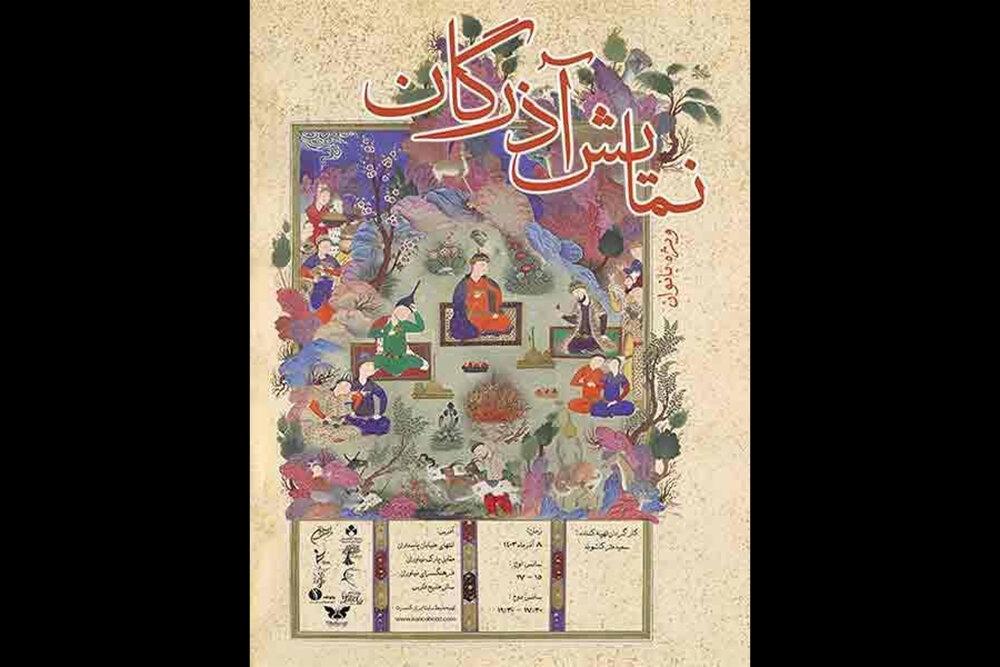 نمایش آذرگان
ویژه بانوان
کارگردان تهیه کننده:
زمان:
۸ آذر ماه ۱۴۰۳
سانس اول:
۱۵ - ۱۷
سانس دوم:
۱۷:۳۰ - ۱۹:۳۰
آدرس:
انتهای خیابان پاسداران
مقابل پارک نیاوران
فرهنگسرای نیاوران
سالن خلیج فارس